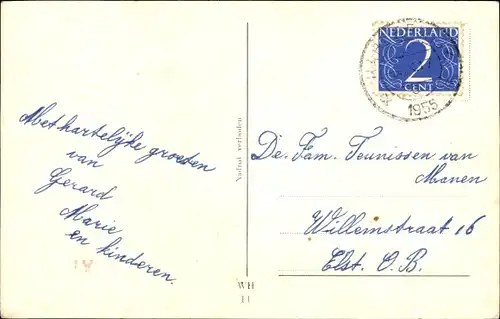 Met hartelijke groeten
van
Gerard
Marie
en kinderen.
Nadruk verboden
WH
11
NEDERLAND
2
CENT
1955
De. Fam. Teunissen van
Manen
Willemstraat 16
Elst. O. B.